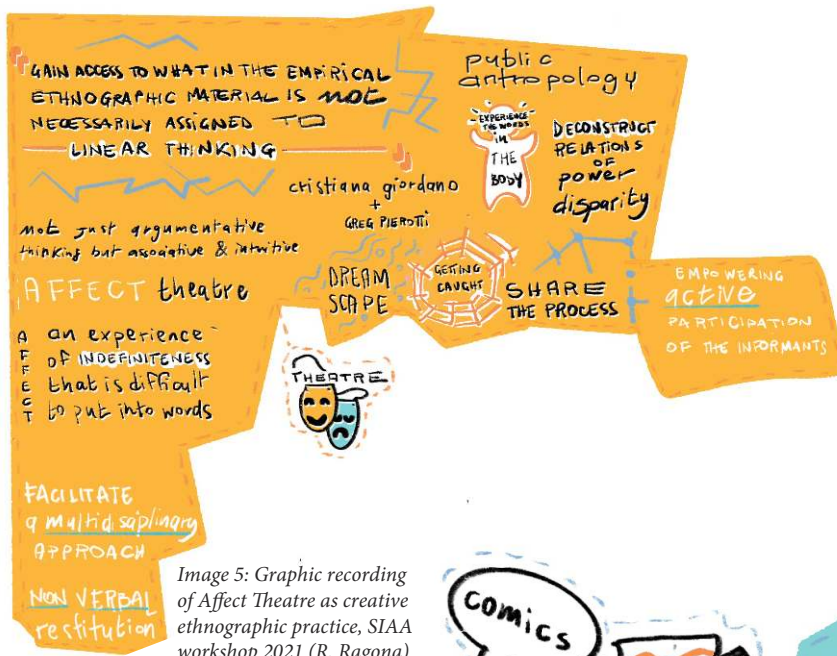 GAIN ACCESS TO WHAT IN THE EMPIRICAL
ETHNOGRAPHIC MATERIAL IS not
NECESSARILY ASSIGNED TO
LINEAR THINKING
not just argumentative
thinking but associative & intuitive
AFFECT theatre
AFFECT
an experience
OF INDEFINITENESS
that is difficult
to put into words
FACILITATE
a multidisaplinary
APPROACH
NON VERBAL
restitution
cristiana giordano
+
GREG PIEROTTI
DREAM
SCAPE
GETTING
CAUGHT
public
antropology
EXPERIENCE
THE WORDS
in
THE
BODY
DECONSTRUCT
RELATIONS
OF
power
disparity
SHARE
THE PROCESS
EMPOWERING
active
PARTICIPATION
OF THE INFORMANTS
THEATRE
Image 5: Graphic recording
of Affect Theatre as creative
ethnographic practice, SIAA
workshop 2021 (R. Ragona)
comics